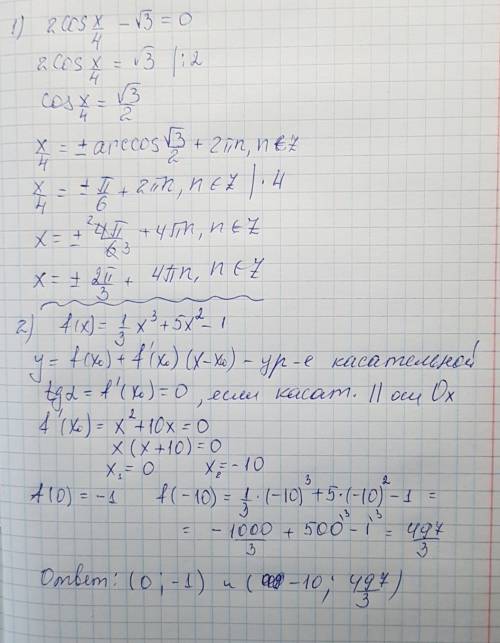 1) 2cos x/4 − √3 = 0
2cos x/4 = √3 |:2
cos x/4 = √3/2
x/4 = ± arccos √3/2 + 2πn, n∈Z
x/4 = ± π/6 + 2πn, n∈Z |·4
x = ± 4π/6 + 4πn, n∈Z
x = ± 2π/3 + 4πn, n∈Z
2) f(x) = 1/3 x³ + 5x² − 1
y = f(x₀) + f'(x₀)(x−x₀) – ур-е касательной
tg α = f'(x₀) = 0, если касат. || оси Ox
f'(x₀) = x² + 10x = 0
x(x+10) = 0
x₁ = 0 x₂ = −10
f(0) = −1 f(−10) = 1/3·(−10)³ + 5·(−10)² − 1 =
= −1000/3 + 500 − 1 = 497/3
Ответ: (0; −1) и (−10; 497/3)